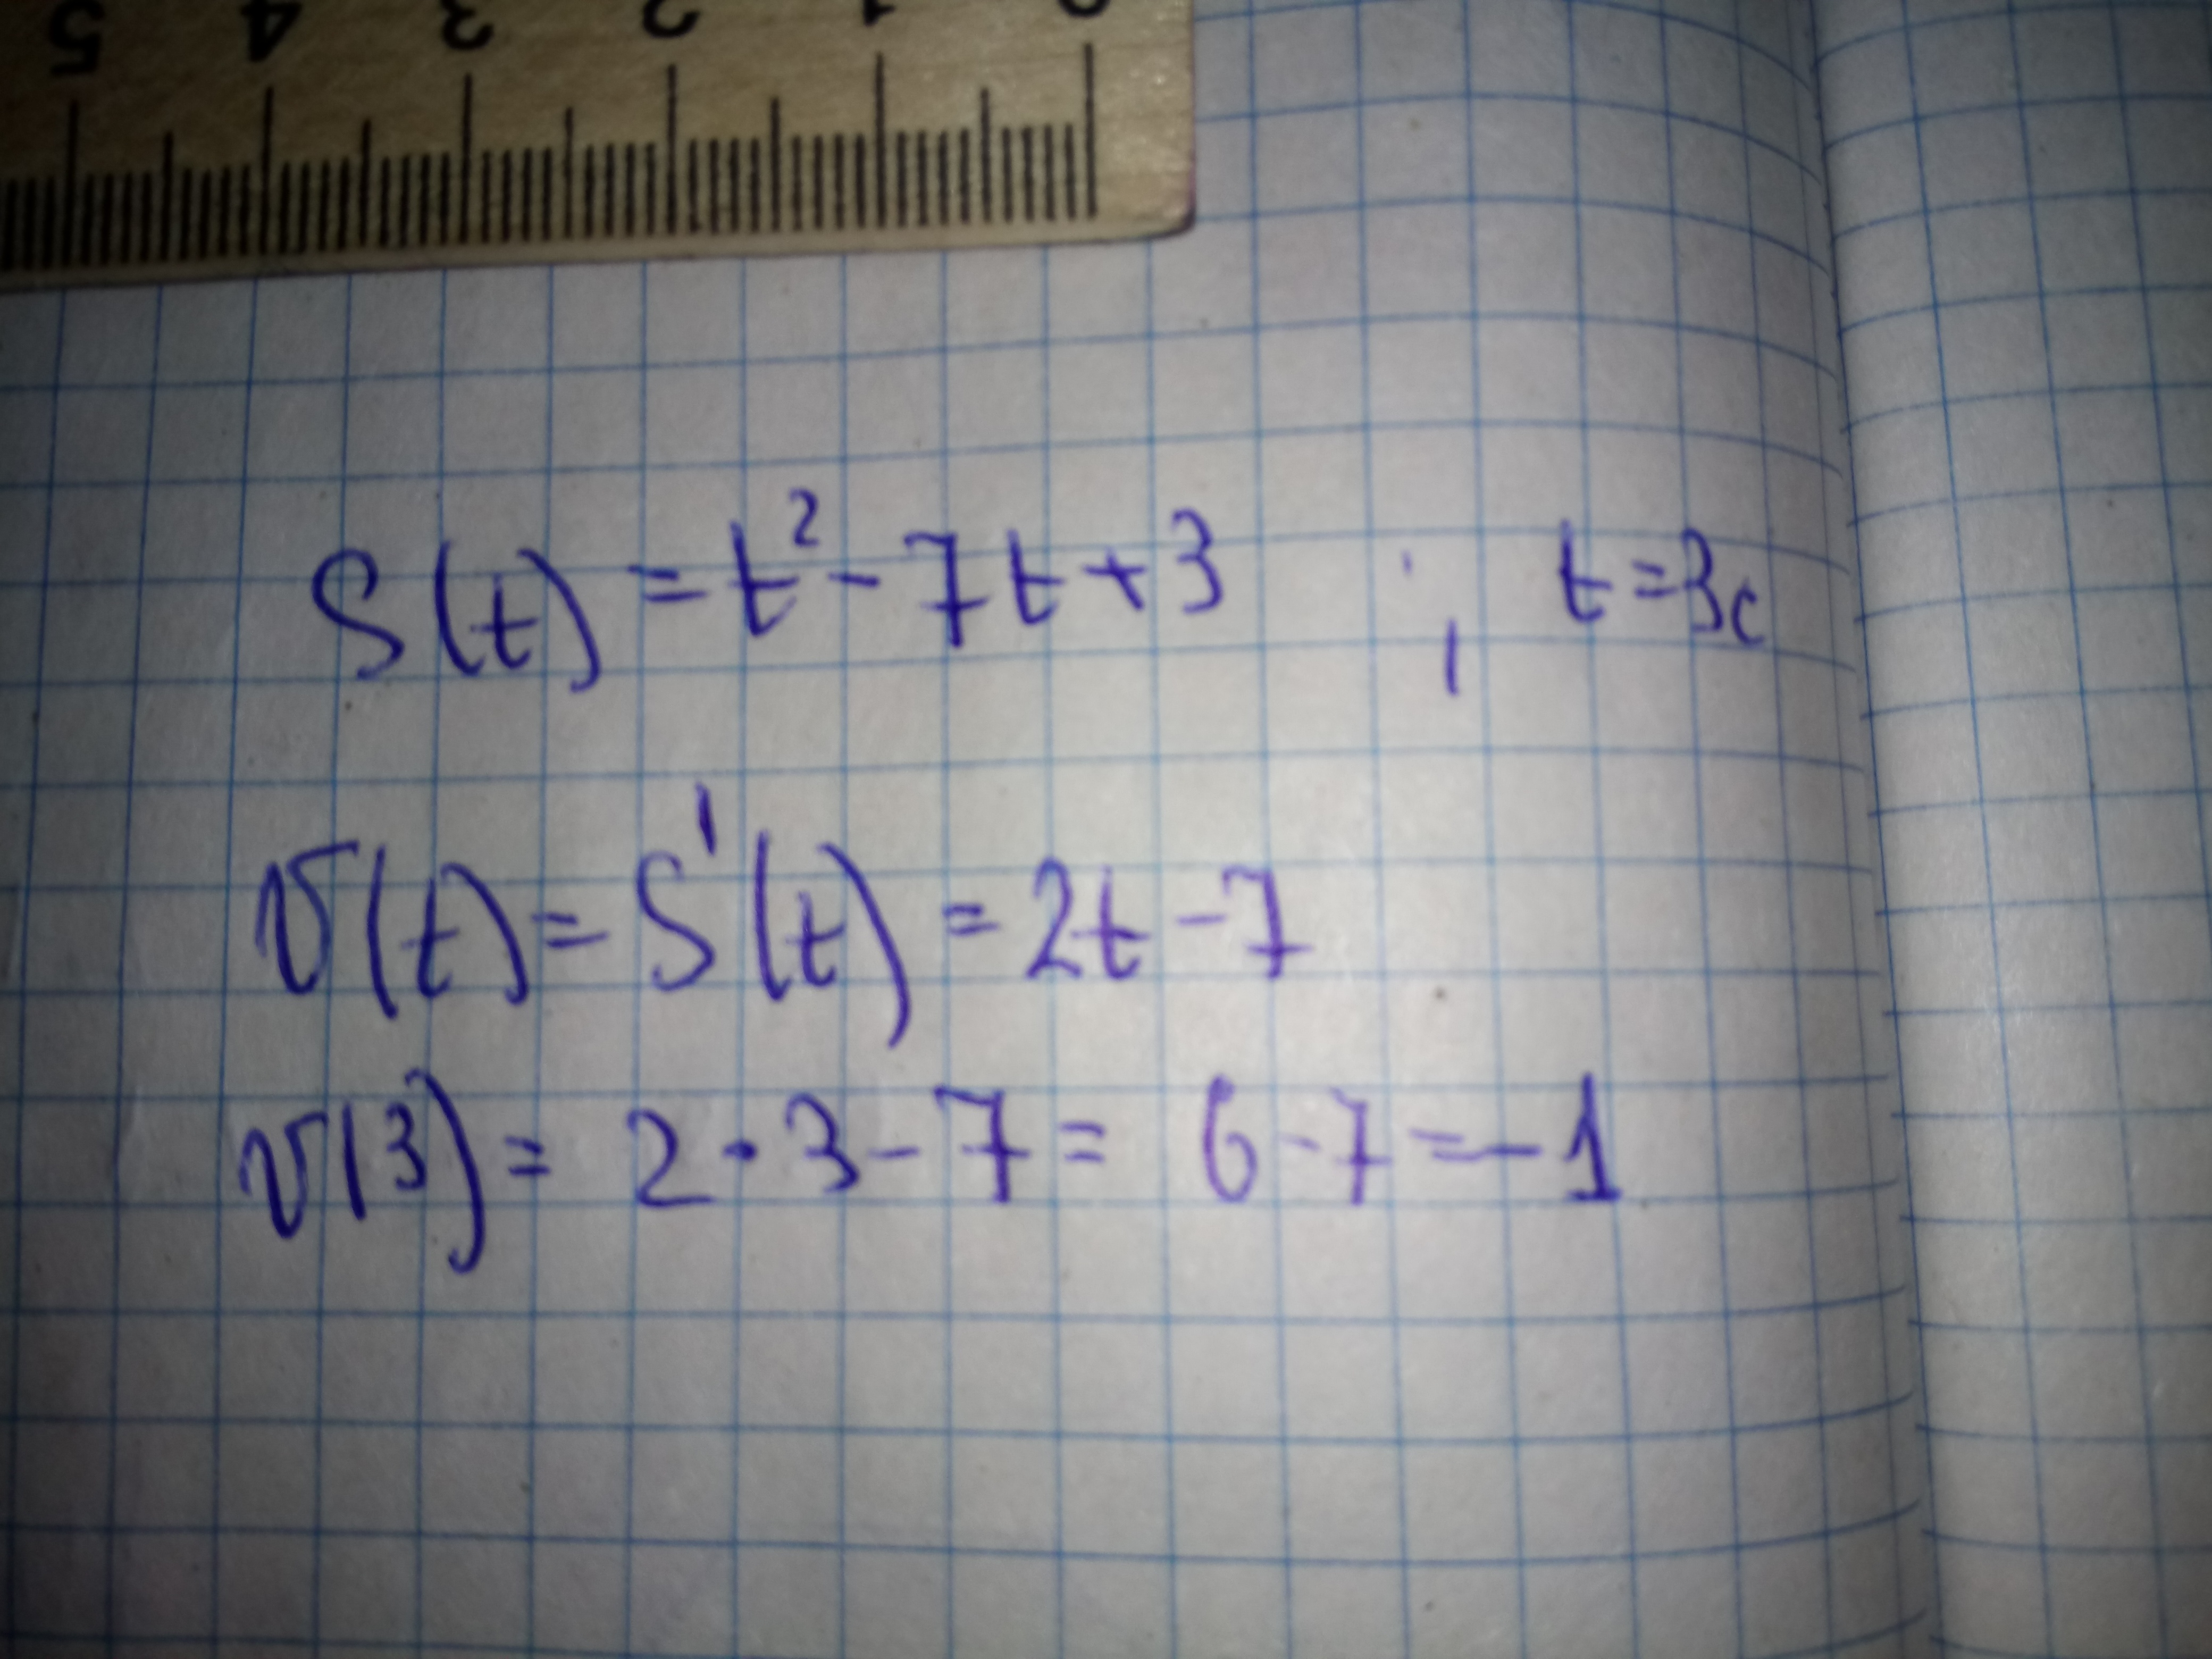 5 4 3 2 1 0
S(t) = t² - 7t + 3 ; t = 3c
v(t) = S'(t) = 2t - 7
v(3) = 2 · 3 - 7 = 6 - 7 = -1